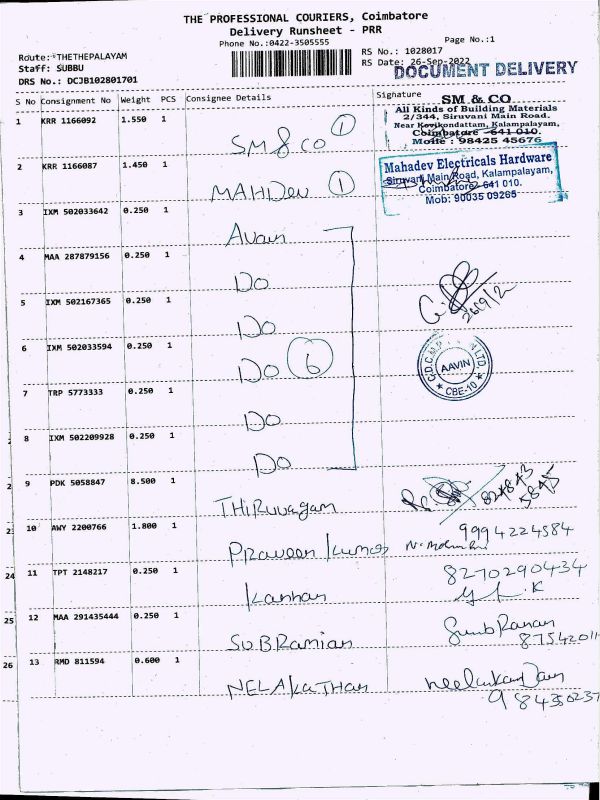 THE PROFESSIONAL COURIERS, Coimbatore
Delivery Runsheet - PRR
Phone No.:0422-3505555
Page No.:1
Route: THETHEPALAYAM
RS No.: 1028017
Staff: SUBBU
RS Date: 26-Sep-2022
DRS No.: DCJB102801701
DOCUMENT DELIVERY
S No Consignment No Weight PCS Consignee Details Signature
1 KRR 1166092 1.550 1 SM & CO 1
SM & CO
All Kinds of Building Materials
2/344, Siruvani Main Road.
Near Kovikondattam, Kalampalayam,
Coimbatore - 641 010.
98425 45676
2 KRR 1166087 1.450 1 MAHDev 1
Mahadev Electricals Hardware
Siruvani Main Road, Kalampalayam,
Coimbatore 641 010.
Mob: 90035 09265
3 IXM 502033642 0.250 1 Avain
4 MAA 287879156 0.250 1 DO
5 IXM 502167365 0.250 1 DO
26/9/2
6 IXM 502033594 0.250 1 DO 6
AAVIN
CBE-10
7 TRP 5773333 0.250 1 DO
8 IXM 502209928 0.250 1 DO
9 PDK 5058847 8.500 1 THIRuvagam
10 AWY 2200766 1.800 1 Praveen kumar
9994224584
11 TPT 2148217 0.250 1 Kannan
8270290434
12 MAA 291435444 0.250 1 SUBRamian
87542011
13 RMD 811594 0.600 1 NELAKaTHan
984350237
23
24
25
26